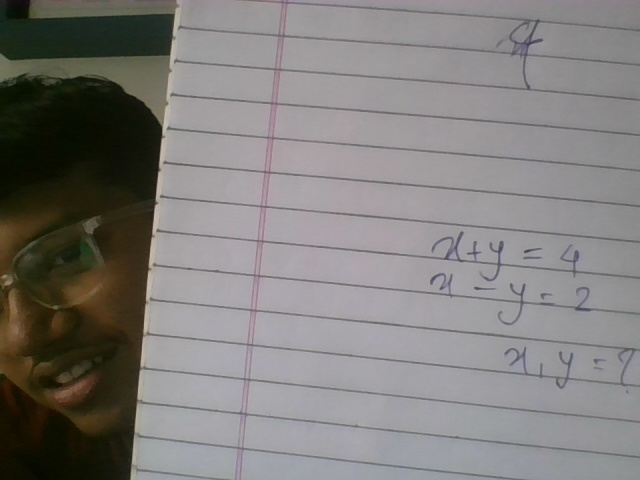 x+y = 4
x - y = 2
x, y = ?